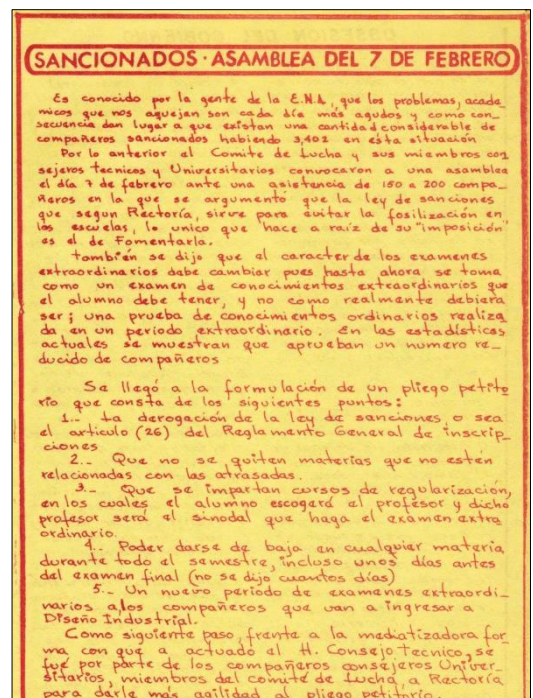 SANCIONADOS · ASAMBLEA DEL 7 DE FEBRERO
Es conocido por la gente de la E.N.A., que los problemas, acade_
micos que nos aquejen son cada día más agudos y como con_
secuencia dan lugar a que existan una cantidad considerable de
compañeros sancionados habiendo 3,402 en esta situación
Por lo anterior el Comite de Lucha y sus miembros con
sejeros tecnicos y Universitarios convocaron a una asamblea
el día 7 de febrero ante una asistencia de 150 a 200 compa_
ñeros en la que se argumentó que la ley de sanciones
que segun Rectoría, sirve para evitar la fosilización en
las escuelas, lo unico que hace a raíz de su "imposición"
es el de Fomentarla.
también se dijo que el caracter de los examenes
extraordinarios debe cambiar pues hasta ahora se toma
como un examen de conocimientos extraordinarios que
el alumno debe tener, y no como realmente debiera
ser; una prueba de conocimientos ordinarios realiza
da en un periodo extraordinario. En las estadísticas
actuales se muestran que aprueban un numero re_
ducido de compañeros
Se llegó a la formulación de un pliego petito
rio que consta de los siguientes puntos:
1._ La derogación de la ley de sanciones o sea
el articulo (26) del Reglamento General de inscrip_
ciones
2._ Que no se quiten materias que no estén
relacionadas con las atrasadas.
3._ Que se impartan cursos de regularización,
en los cuales el alumno escogerá el profesor y dicho
profesor será el sinodal que haga el examen extra
ordinario.
4._ Poder darse de baja en cualquier materia
durante todo el semestre, incluso unos días antes
del examen final (no se dijo cuantos días)
5._ Un nuevo periodo de examenes extraordi_
narios a los compañeros que van a ingresar a
Diseño Industrial.
Como siguiente paso, frente a la mediatizadora for_
ma con que a actuado el H. Consejo tecnico, se
fué por parte de los compañeros consejeros Univer_
sitarios, miembros del comite de Lucha, a Rectoría
para darle más agilidad al pliego petitorio.